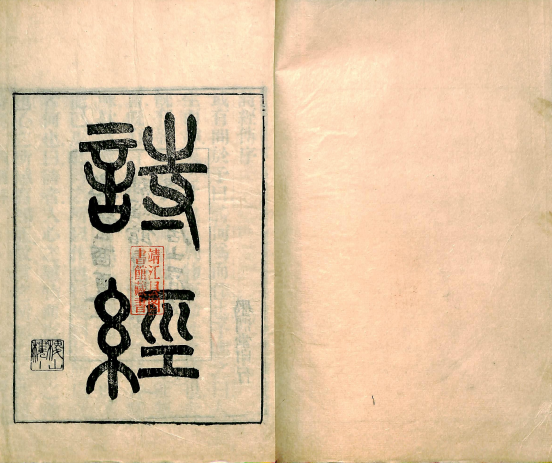 詩經
靖江圖
書館藏書